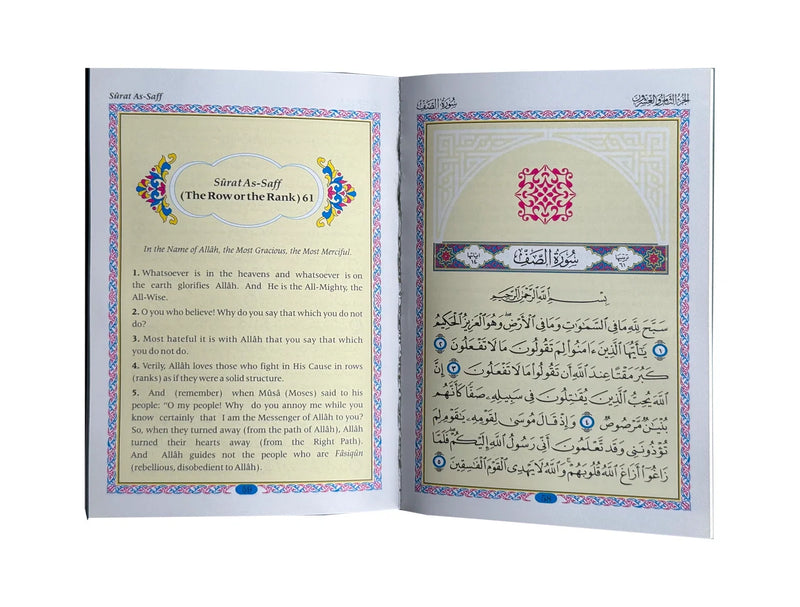 Sûrat As-Saff
Sûrat As-Saff
(The Row or the Rank) 61
In the Name of Allâh, the Most Gracious, the Most Merciful.
1. Whatsoever is in the heavens and whatsoever is on
the earth glorifies Allâh. And He is the All-Mighty, the
All-Wise.
2. O you who believe! Why do you say that which you do not
do?
3. Most hateful it is with Allâh that you say that which
you do not do.
4. Verily, Allâh loves those who fight in His Cause in rows
(ranks) as if they were a solid structure.
5. And (remember) when Mûsâ (Moses) said to his
people: "O my people! Why do you annoy me while you
know certainly that I am the Messenger of Allâh to you?
So, when they turned away (from the path of Allâh), Allâh
turned their hearts away (from the Right Path).
And Allâh guides not the people who are Fâsiqûn
(rebellious, disobedient to Allâh).
الجزء الثامن والعشرون
سُورَةُ الصَّفِّ
سُورَةُ الصَّفِّ
ترتيبها ٦١
آياتها ١٤
بِسْمِ اللَّهِ الرَّحْمَٰنِ الرَّحِيمِ
سَبَّحَ لِلَّهِ مَا فِي السَّمَٰوَٰتِ وَمَا فِي الْأَرْضِ ۖ وَهُوَ الْعَزِيزُ الْحَكِيمُ
١ يَٰٓأَيُّهَا الَّذِينَ ءَامَنُوا لِمَ تَقُولُونَ مَا لَا تَفْعَلُونَ ٢
كَبُرَ مَقْتًا عِندَ اللَّهِ أَن تَقُولُوا مَا لَا تَفْعَلُونَ ٣ إِنَّ
اللَّهَ يُحِبُّ الَّذِينَ يُقَٰتِلُونَ فِي سَبِيلِهِ صَفًّا كَأَنَّهُم
بُنْيَٰنٌ مَّرْصُوصٌ ٤ وَإِذْ قَالَ مُوسَىٰ لِقَوْمِهِ يَٰقَوْمِ لِمَ
تُؤْذُونَنِي وَقَد تَّعْلَمُونَ أَنِّي رَسُولُ اللَّهِ إِلَيْكُمْ ۖ فَلَمَّا
زَاغُوا أَزَاغَ اللَّهُ قُلُوبَهُمْ ۚ وَاللَّهُ لَا يَهْدِي الْقَوْمَ الْفَٰسِقِينَ ٥